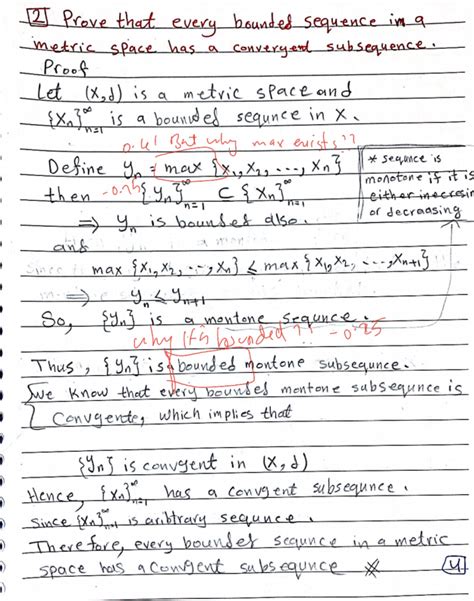 2 Prove that every bounded sequence in a
metric space has a convergent subsequence.
Proof
Let (X,d) is a metric space and
{Xn}∞n=1 is a bounded sequnce in X.
0.k! But why max exists??
Define Yn = max {X1, X2, ..., Xn}
* sequnce is
monotone if it is
either
or decraasing
then -0.25 {Yn}∞n=1 ⊂ {Xn}∞n=1
⇒ Yn is bounded also.
and
max {X1, X2, ..., Xn} ≤ max {X1, X2, ..., Xn+1}
⇒ Yn ≤ Yn+1
So, {Yn} is a montone sequnce.
why it is bounded?! -0.25
Thus, {Yn} is bounded montone subsequnce.
we know that every bounded montone subsequnce is
Convgente, which implies that
{Yn} is convgent in (X,d)
Hence, {Xn}∞n=1 has a convgent subsequnce.
Since {Xn}∞n=1 is aribtrary sequnce.
Therefore, every bounded sequnce in a metric
space has a convgent subsequnce
4